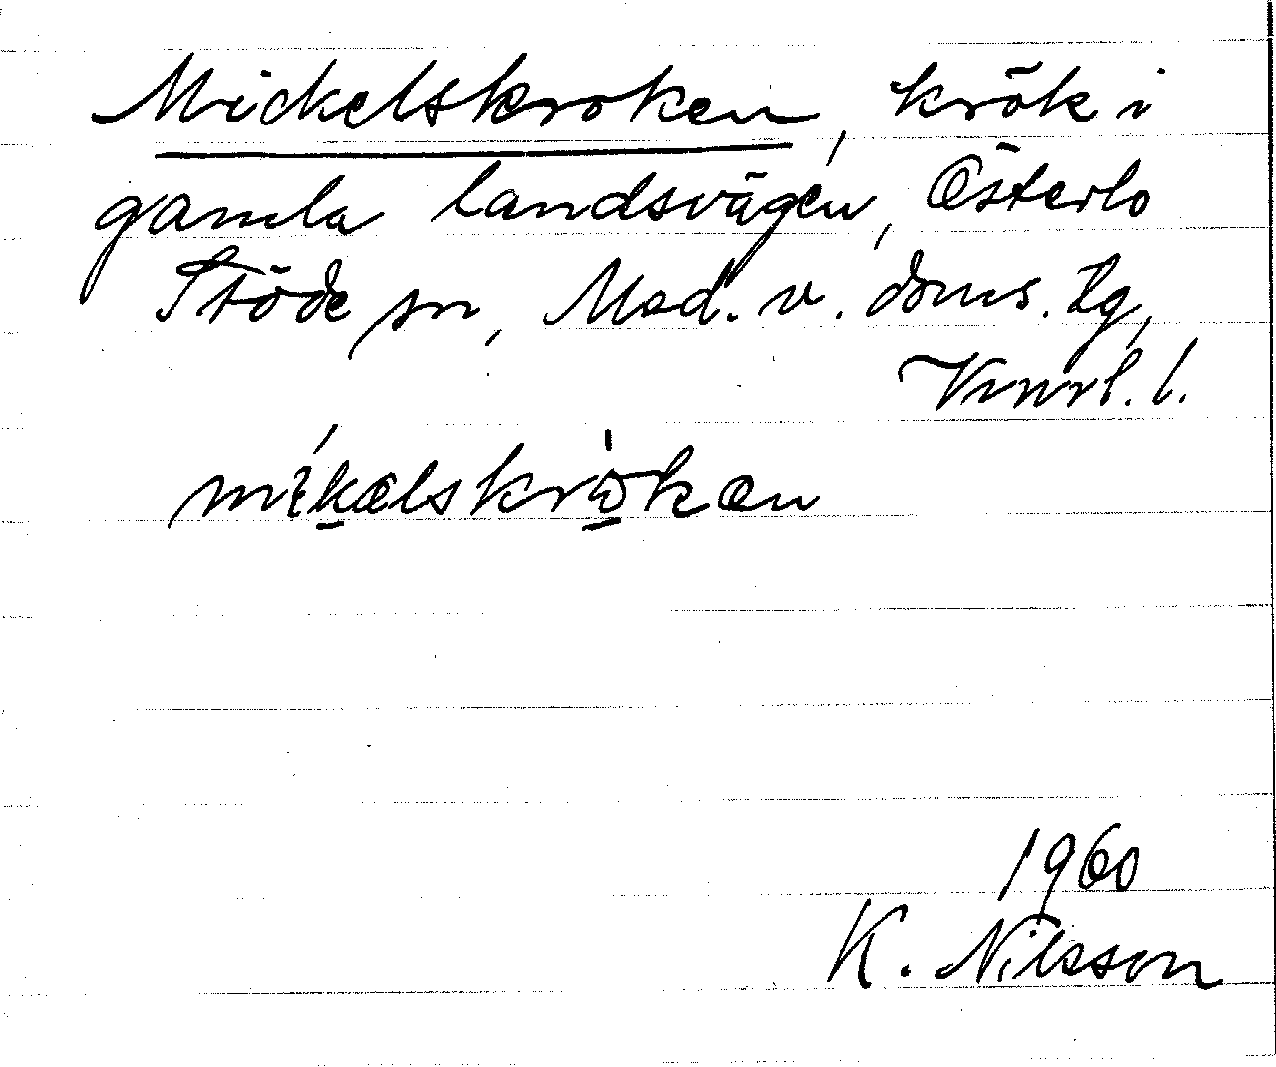 Mickelskroken, krök i
gamla landsvägen, Österlo
Stöde sn, Med. v. doms. tg,
Vnrl. l.
1960
K. Nilsson